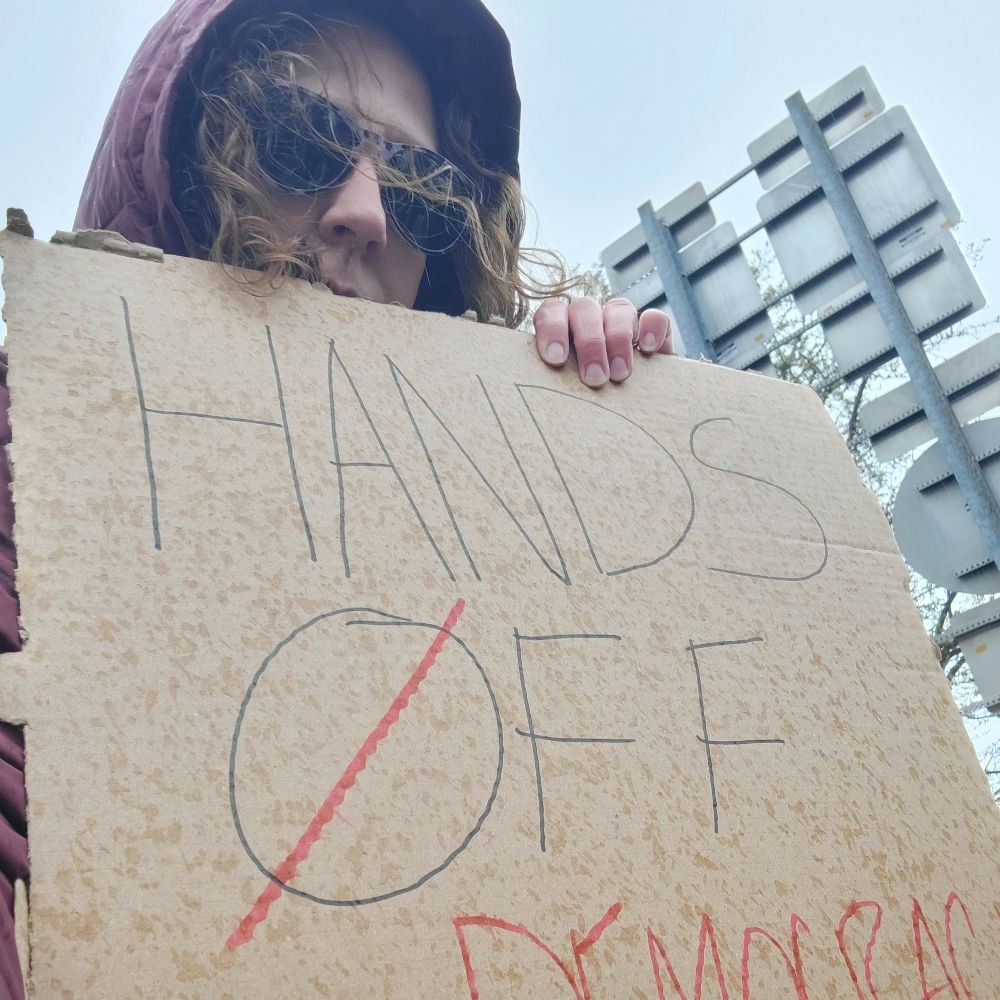 HANDS
OFF
DEMOCRAC